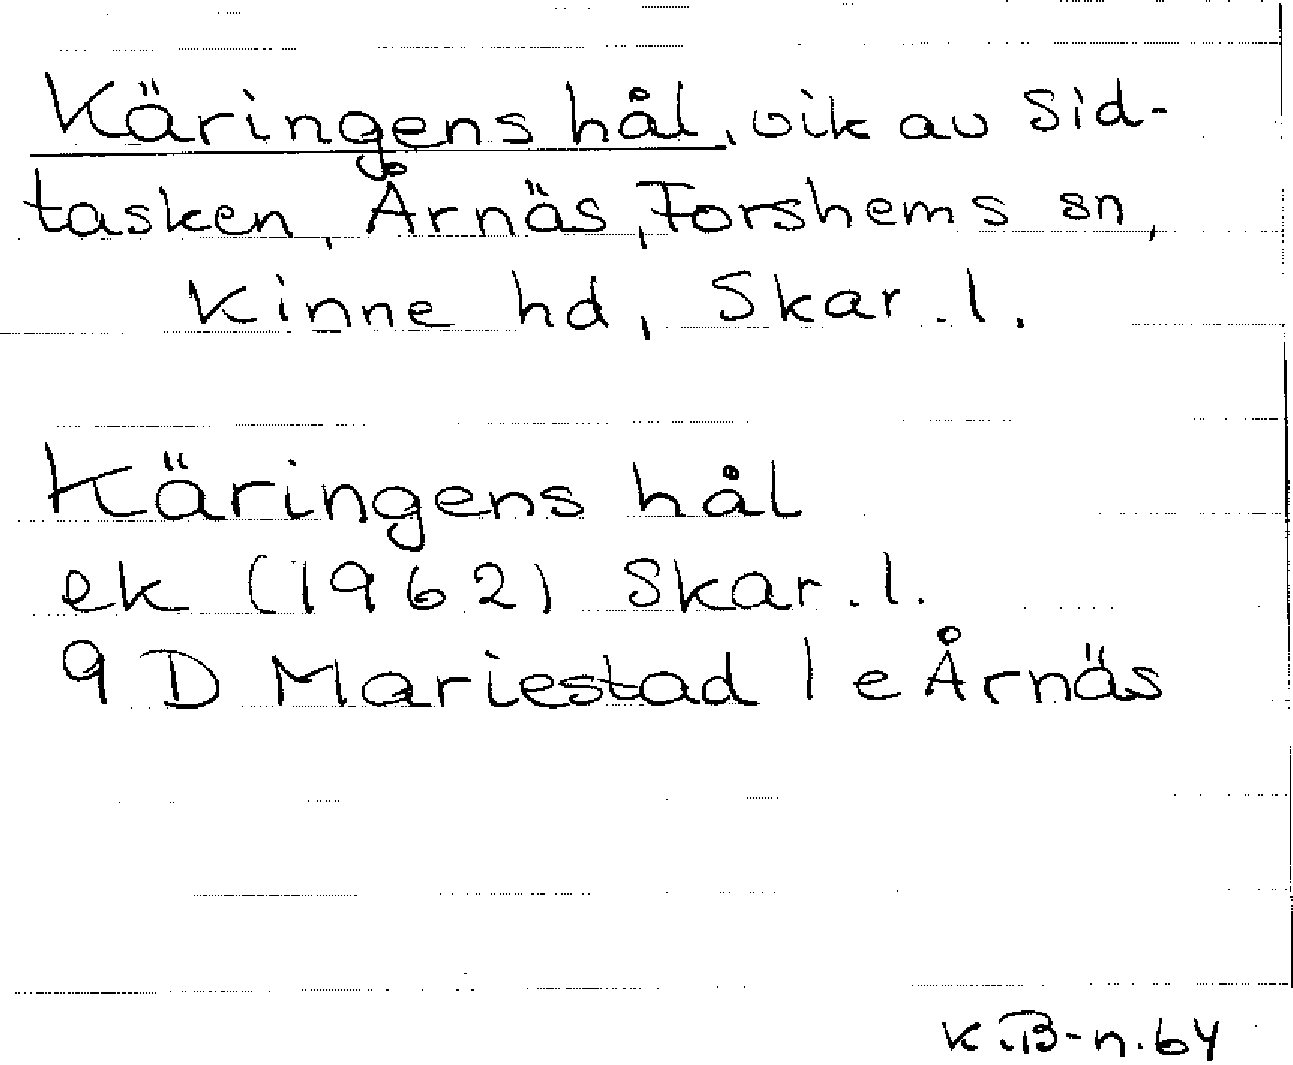 Käringens hål, vik av Sid-
tasken, Årnäs, Forshems sn,
Kinne hd, Skar. l.
Käringens hål
ek (1962) Skar. l.
9 D Mariestad 1 e Årnäs
K.B-n. 64